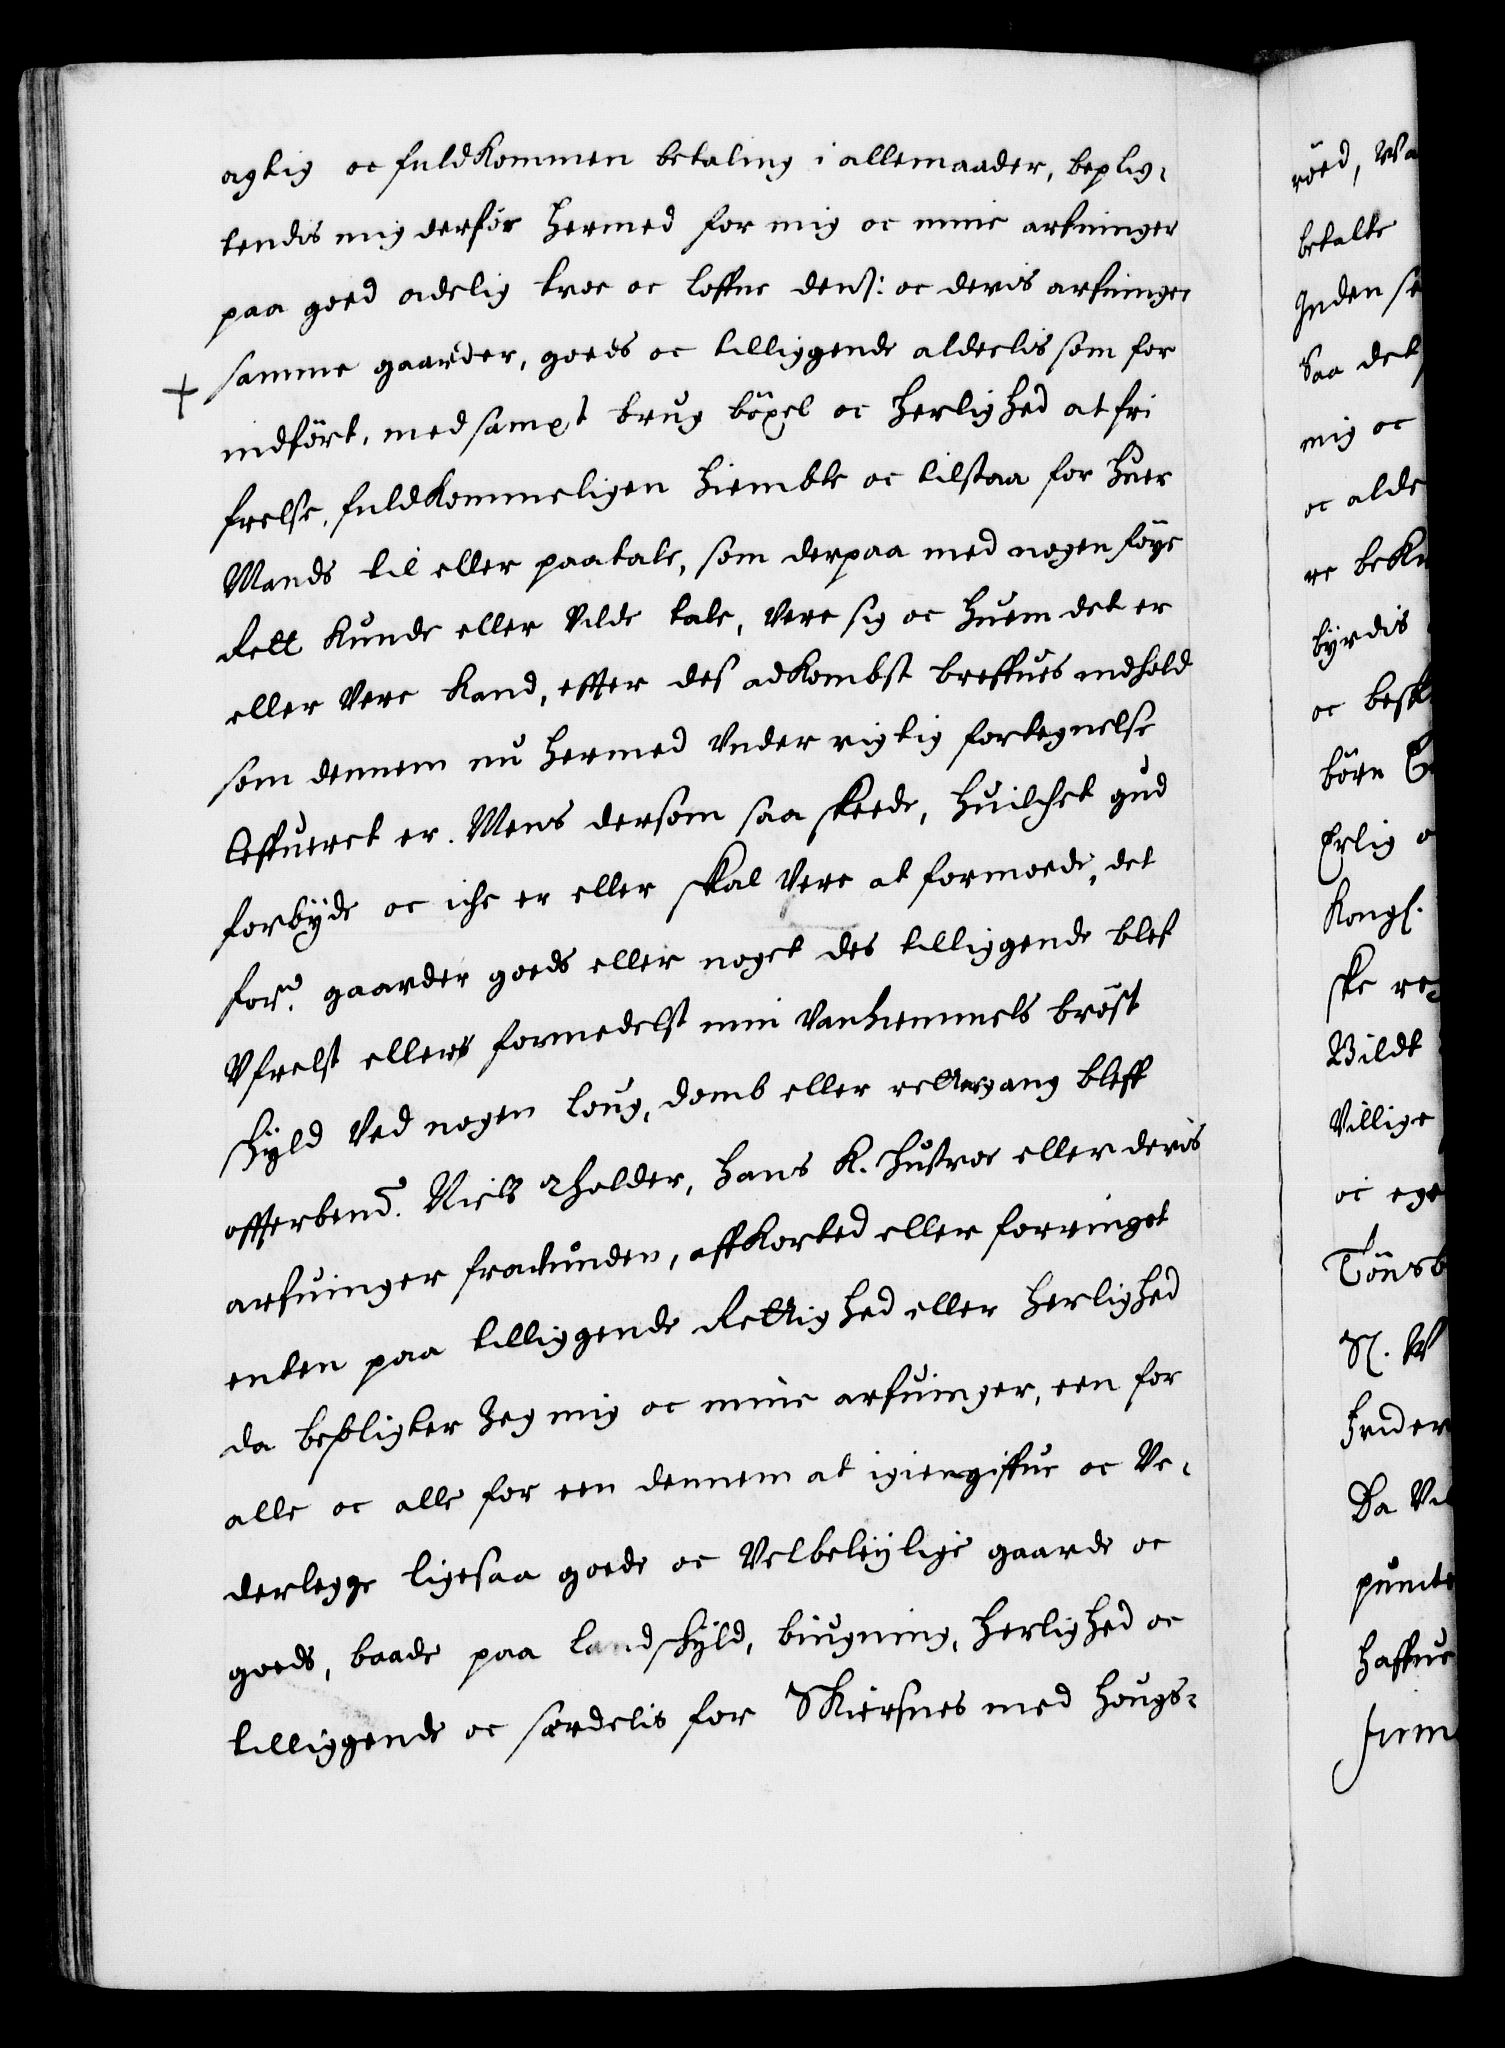 agtig oc fuldKommen betaling i allemaader, beplig-
tendis mig derfor hermed for mig oc mine arfuinger
paa goed adelig troe oc loffue denß: oc deris arfuinger
+ samme gaarder, goeds oc tilliggende aldelis som for
indført, med sampt brug böxel oc herlighed at fri
frelse, fuldKommeligen hiemble oc tilstaa for huer
Mands til eller paatale, som derpaa med nogen föye
Rett Kunde eller Vilde tale, Vere sig oc huem det er
eller Vere Kand, effter des adKombst breffues indhold
som dennem nu hermed Vnder rigtig fortegnelse
leffueret er. Mens dersom saa skeede, huilchet gud
forbÿde oc iche er eller skal Vere at formoede, det
for.ne gaarder goeds eller noget des tilliggende bleff
Vfrelst ellers formedelst min Vanhiemmels bröst
skÿld Ved nogen loug, domb eller rettergang bleff
offterbend.te Niels Tholder, hans K. hustroe eller deris
arfuinger fraVunden, affKorted eller forringet
enten paa tilliggende Rettighed eller herlighed
da befligter Jeg mig oc mine arfuinger, een for
alle oc alle for een dennem at igiengiffue oc Ve-
derlegge ligesaa goede oc Velbeleÿlige gaarde oc
goeds, baade paa landskÿld, biugning, herlighed oc
tilliggende oc særdelis for Skiersnes med hougs-
röed, Wa
betalte
Inden se
Saa det
mig oc
oc alde
re beKn
bÿrdis
oc besk
börn
Erlig o
Kongl.
ske re
Bildt
Villige
oc ege
Tönsb
Sl. W
frider
Da Vil
puncte
haffue